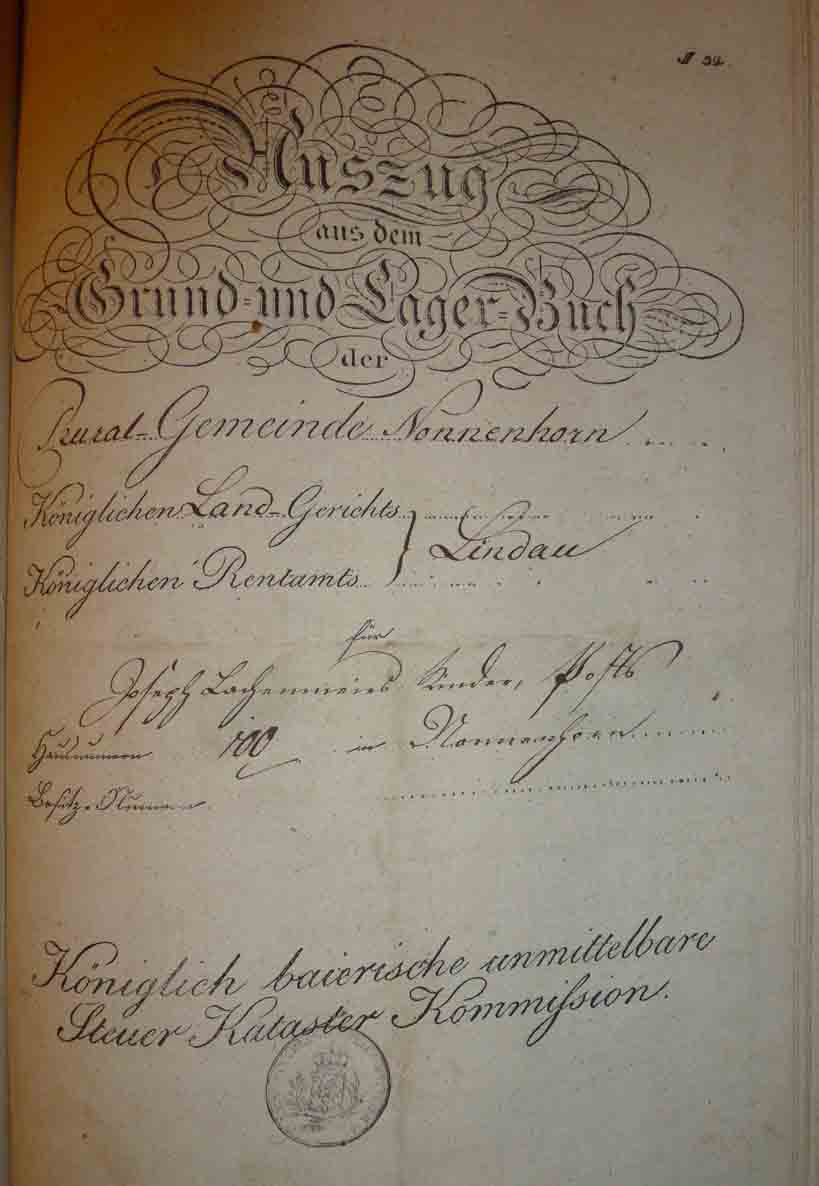 Auszug
aus dem
Grund- und Lager-Buch
der
Rural-Gemeinde Nonnenhorn
Königlichen Land-Gerichts
Lindau
Königlichen Rentamts
für
Joseph Lachenmeiers Kinder,
Hausnumern 100 in Nonnenhorn
Besitz-Numern
Königlich baierische unmittelbare
Steuer Kataster Kommißion.